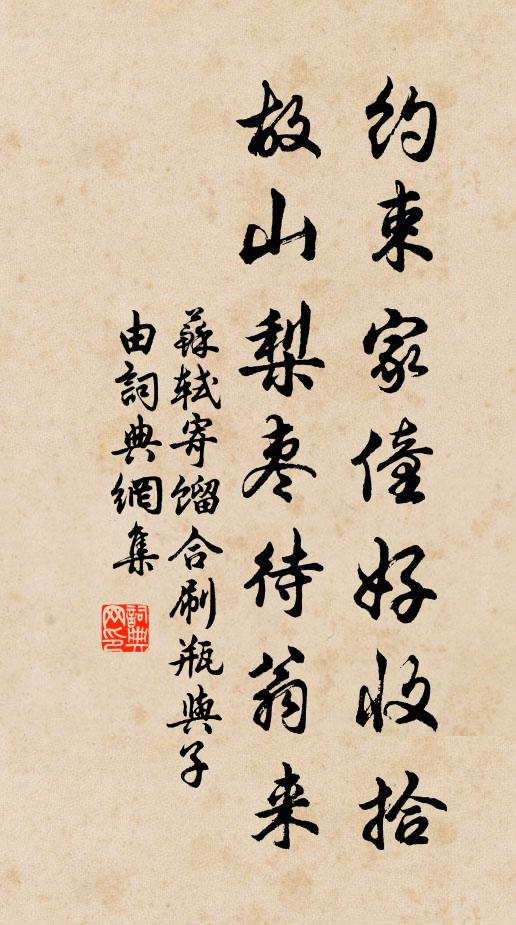 約束家僮好收拾
故山梨枣待翁来
蘇軾寄馏合刷瓶與子
由詞典網集
詞典网印